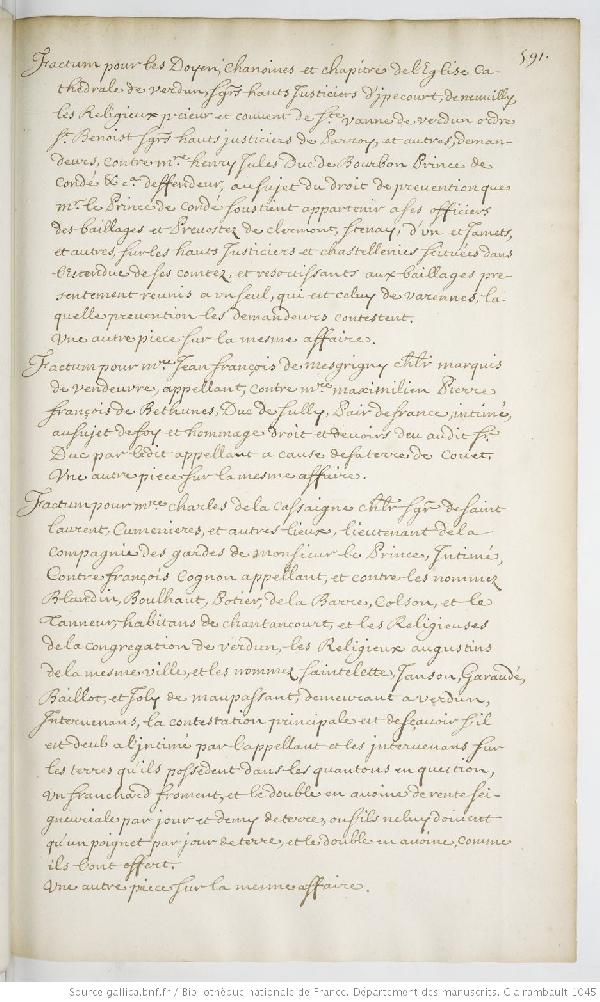 591.
Factum pour les Doyen, Chanoines et chapitre de l'Eglise Ca-
thedrale de verdun, sgrs hauts Justiciers d'jpecourt, de neuuilly
les Religieux prieur et couuent de Ste vanne de verdun ordre
St. Benoist sgrs hauts justiciers de Parroy, et autres, deman-
deurs, contre mre henry Jules Duc de Bourbon Prince de
Condé &ca. deffendeur, au sujet du droit de preuention que
mr. le Prince de Condé soustient appartenir a ses officiers
des bailliages et Preuostez de clermont, stenay, d'un et Jamets,
et autres, sur les hauts Justiciers et chastellenies scituées dans
l'estendue de ses comtez, et resortissants aux bailliages pre-
sentement reunis a un seul, qui est celuy de varennes, la-
quelle preuention les demandeurs contestent.
Vne autre piece sur la mesme affaire.
Factum pour mre. Jean françois de mesgrigny chlr marquis
de vendeuvre, appellant, contre mre maximilien Pierre
françois de Bethunes, Duc de sully, Pair de france, intimé,
au sujet de foy et hommage droit et deuoirs deu audit sr.
Duc par ledit appellant a cause de sa terre de Couet.
Vne autre piece sur la mesme affaire.
Factum pour mre charles de la Cassaigne chlr sgr de saint
laurent, Cumenieres, et autres lieux, lieutenant de la
Compagnie des gardes de monsieur le Prince, Intimé,
Contre françois Cognon appellant, et contre les nommez
Blandin, Boulhaut, Potier, de la Barre, Colson, et le
Tanneur, habitans de chantancourt, et les Religieuses
de la congregation de verdun, les Religieux augustins
de la mesme ville, et les nommez saintelette, Janson, Garaudé,
Baillot, et Joly de maupassant, demeurant a verdun,
Interuenans, la contestation principale est de sçauoir s'il
est deub a l'intimé par l'appellant et les interuenans sur
les terres qu'ils possedent dans les quantons en question,
un franchard froment, et le double en auoine de rente sei-
gneuriale par jour et demy de terre, ou s'ils ne luy doiuent
qu'un poignet par jour de terre, et le double en auoine, comme
ils l'ont offert.
Vne autre piece sur la mesme affaire.
Source gallica.bnf.fr / Bibliothèque nationale de France. Département des manuscrits. Clairambault 1045